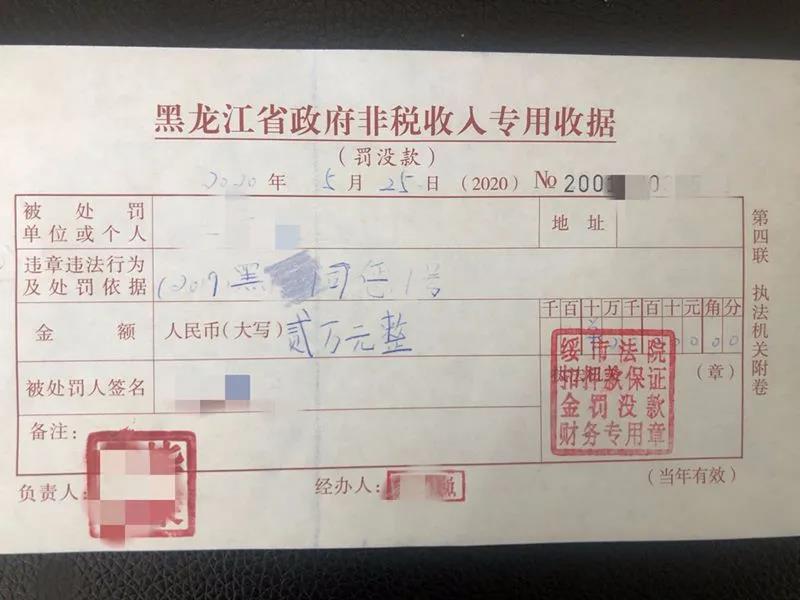 黑龙江省政府非税收入专用收据
(罚没款)
2020 年 5 月 25 日 (2020) № 200
被处罚
单位或个人
地址
违章违法行为
及处罚依据
(2019 黑 司惩1号
千百十万千百十元角分
金额 人民币(大写) 贰万元整
绥 市法院
扣押款保证
金罚没款
财务专用章
(章)
被处罚人签名
备注:
负责人:
经办人:
(当年有效)
第四联 执法机关附卷